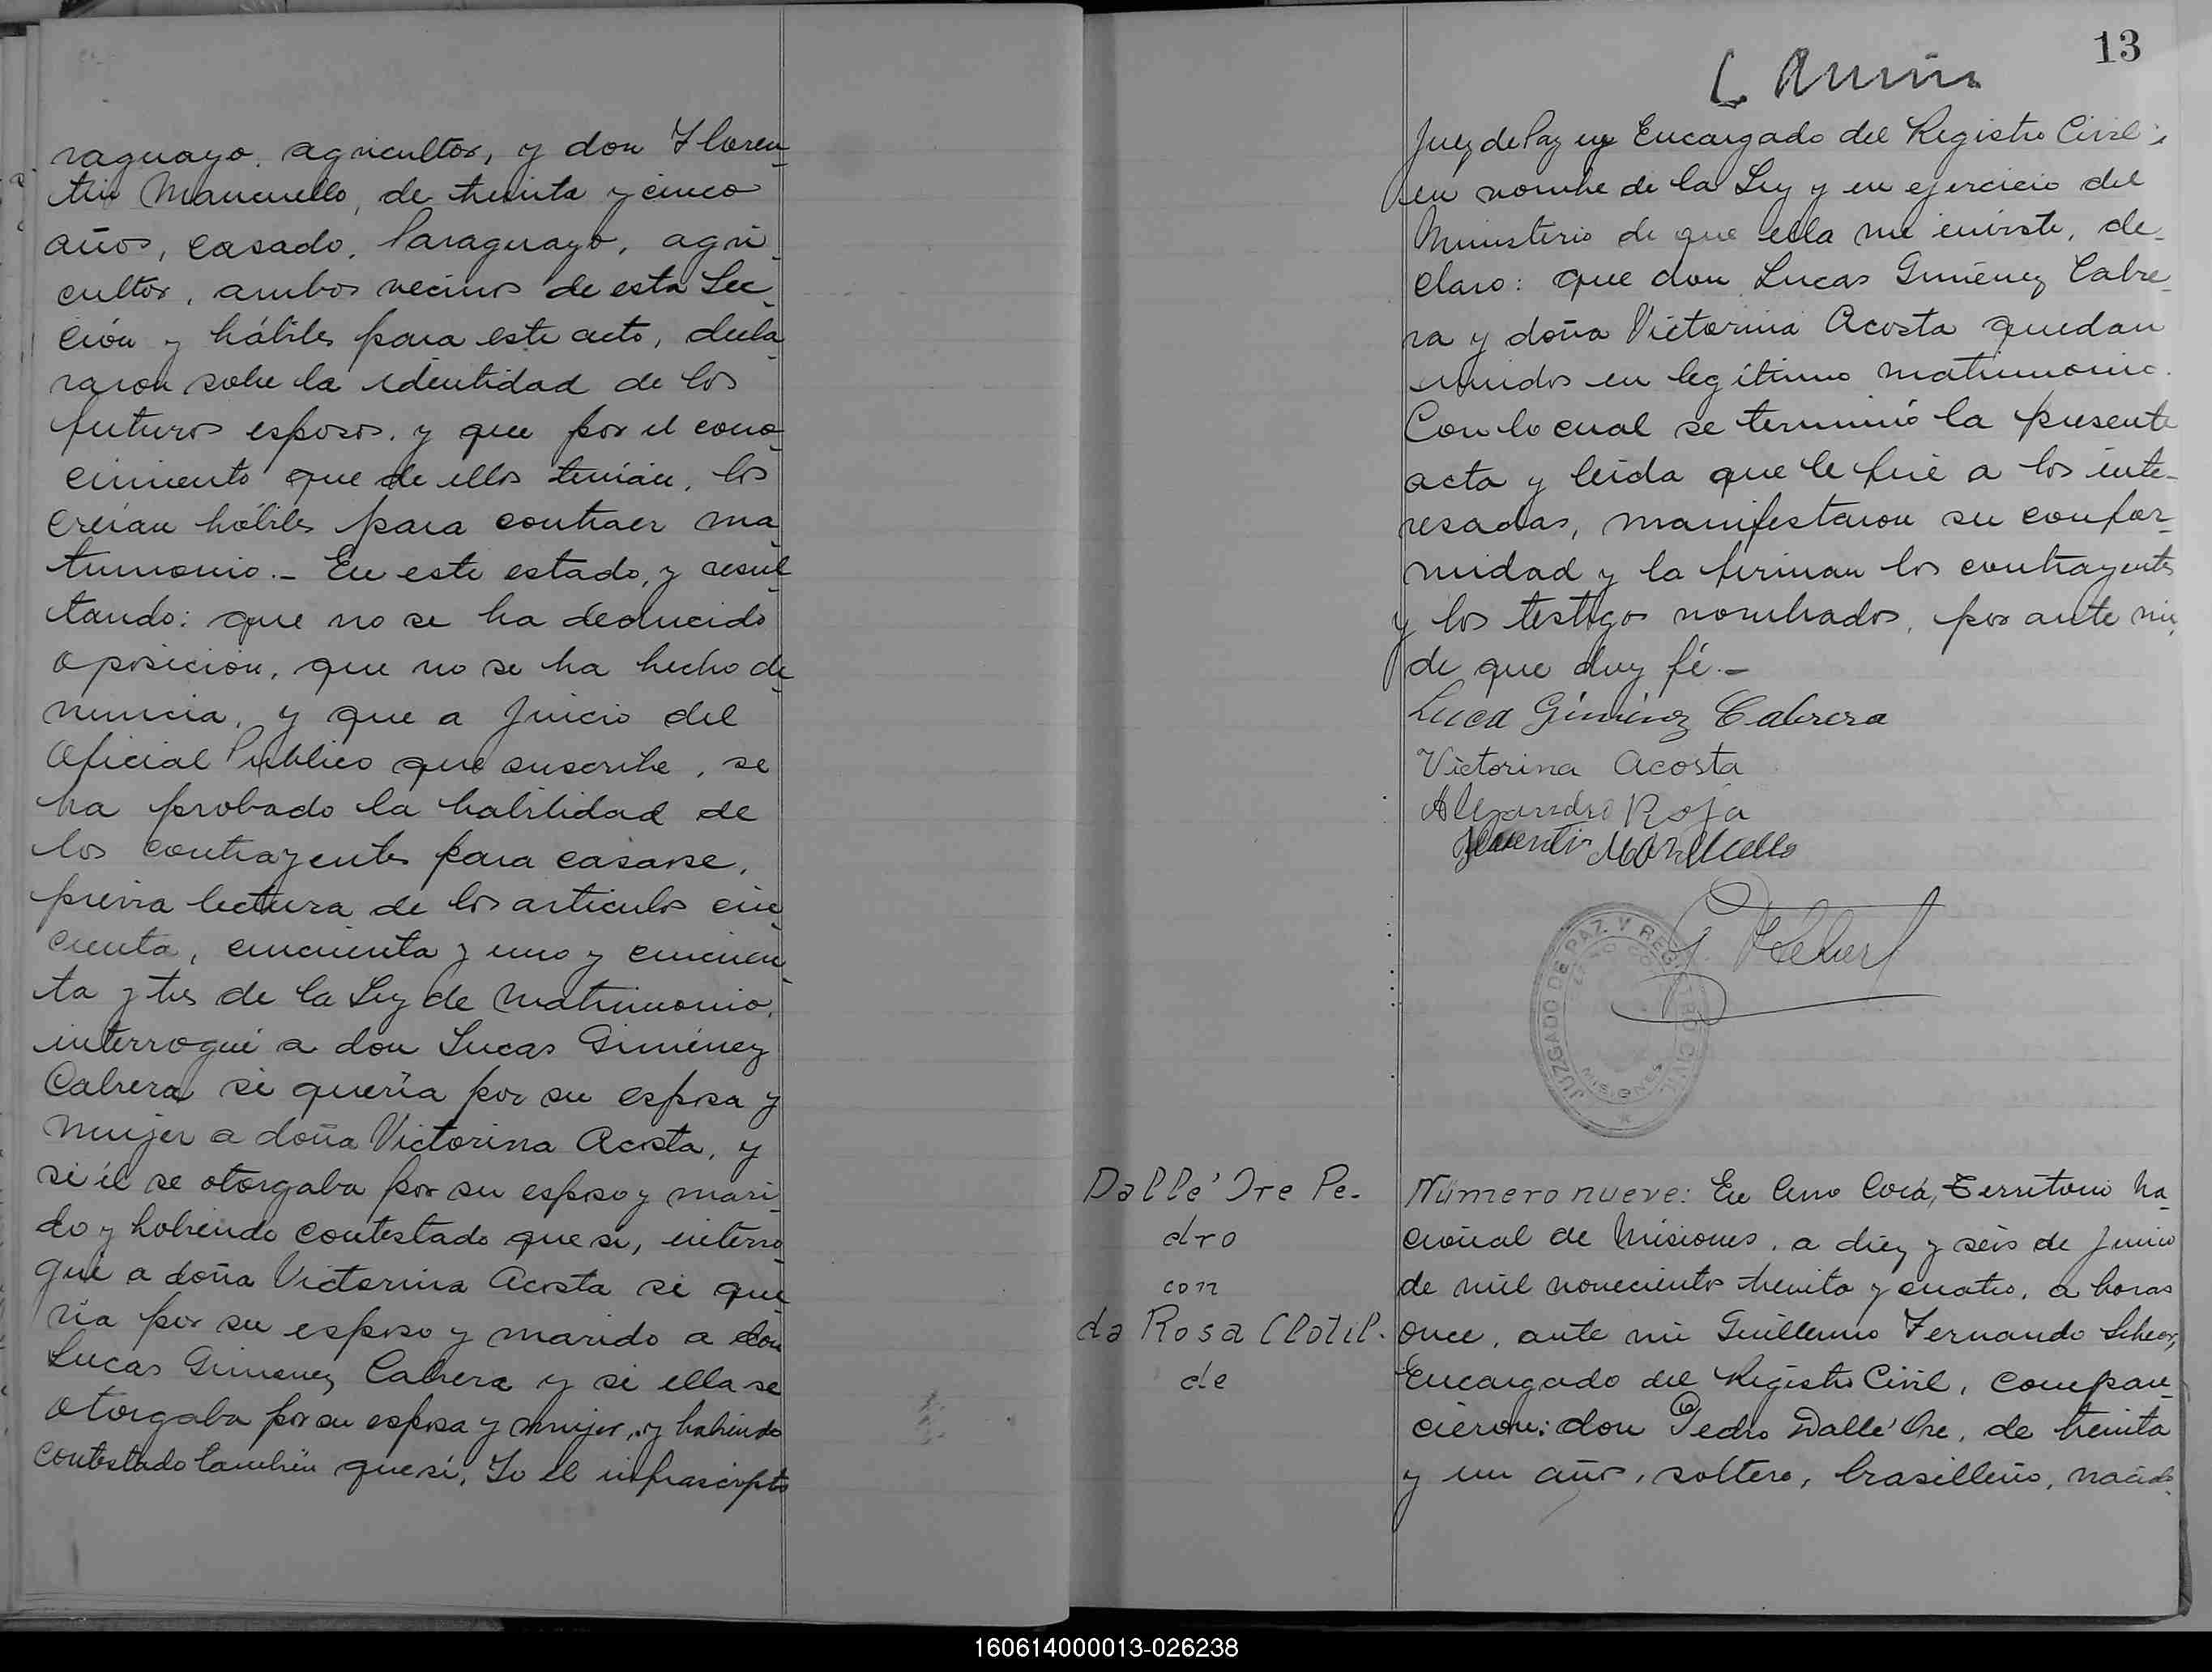 raguayo, agricultor, y don Floren-
tin Mancuello, de treinta y cinco
años, casado, Paraguayo, agri-
cultor, ambos vecinos de esta Sec-
ción y hábiles para este acto, decla-
raron sobre la identidad de los
futuros esposos, y que por el cono-
cimiento que de ellos tenían, los
creían hábiles para contraer ma-
trimonio.- En este estado, y resul-
tando: que no se ha deducido
oposicion, que no se ha hecho de-
nuncia, y que a juicio del
Oficial Publico que suscribe, se
ha probado la habilidad de
los contrayentes para casarse,
previa lectura de los articulos cin-
cuenta, cincuenta y uno y cincuen-
ta y tres de la Ley de Matrimonio,
interrogué a don Lucas Giménez
Cabrera si quería por su esposa y
mujer a doña Victorina Acosta, y
si él se otorgaba por su esposo y mari-
do y habiendo contestado que si, interro-
gué a doña Victorina Acosta si que-
ría por su esposo y marido a don
Lucas Gimenez Cabrera y si ella se
otorgaba por su esposa y mujer, y habiendo
contestado también que sí, Yo el infrascripto
13
Juez de Paz y Encargado del Registro Civil,
en nombre de la Ley y en ejercicio del
Ministerio de que ella me inviste, de-
claro: que don Lucas Giménez Cabre-
ra y doña Victorina Acosta quedan
unidos en legítimo matrimonio.
Con lo cual se terminó la presente
acta y leida que le fué a los inte-
resados, manifestaron su confor-
midad y la firman los contrayentes
y los testigos nombrados, por ante mi,
de que doy fé.-
Luca Giminez Cabrera
Victorina Acosta
Alejandro Roja
Florentin Mancuello
JUZGADO DE PAZ Y REGISTRO CIVIL
MISIONES
Dalle' Ore Pe-
dro
con
da Rosa Clotil-
de
Número nueve: En Cerro Corá, Territorio Na-
cional de Misiones, a diez y séis de Junio
de mil novecientos treinta y cuatro, a horas
once, ante mi Guillermo Fernando
Encargado del Registro Civil, compare-
cieron: don Pedro Dalle' Ore, de treinta
y un años, soltero, brasilleño, nacido
160614000013-026238